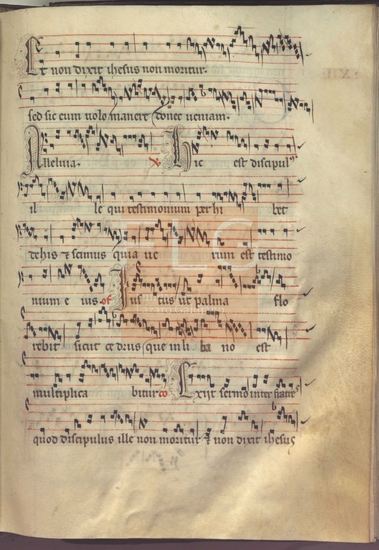 Et non dixit ihesus non moritur.
sed sic eum uolo manere donec ueniam.
Alleluia. Hic est discipul
il le qui testimonium per hi bet
de his ⁊ scimus quia ue rum est testimo
nium e ius of Ius tus ut palma flo
rebit sicut cedrus que in li ba no est
multiplica bitur co Exijt sermo inter fratres
quod discipulus ille non moritur ⁊ non dixit ihesus